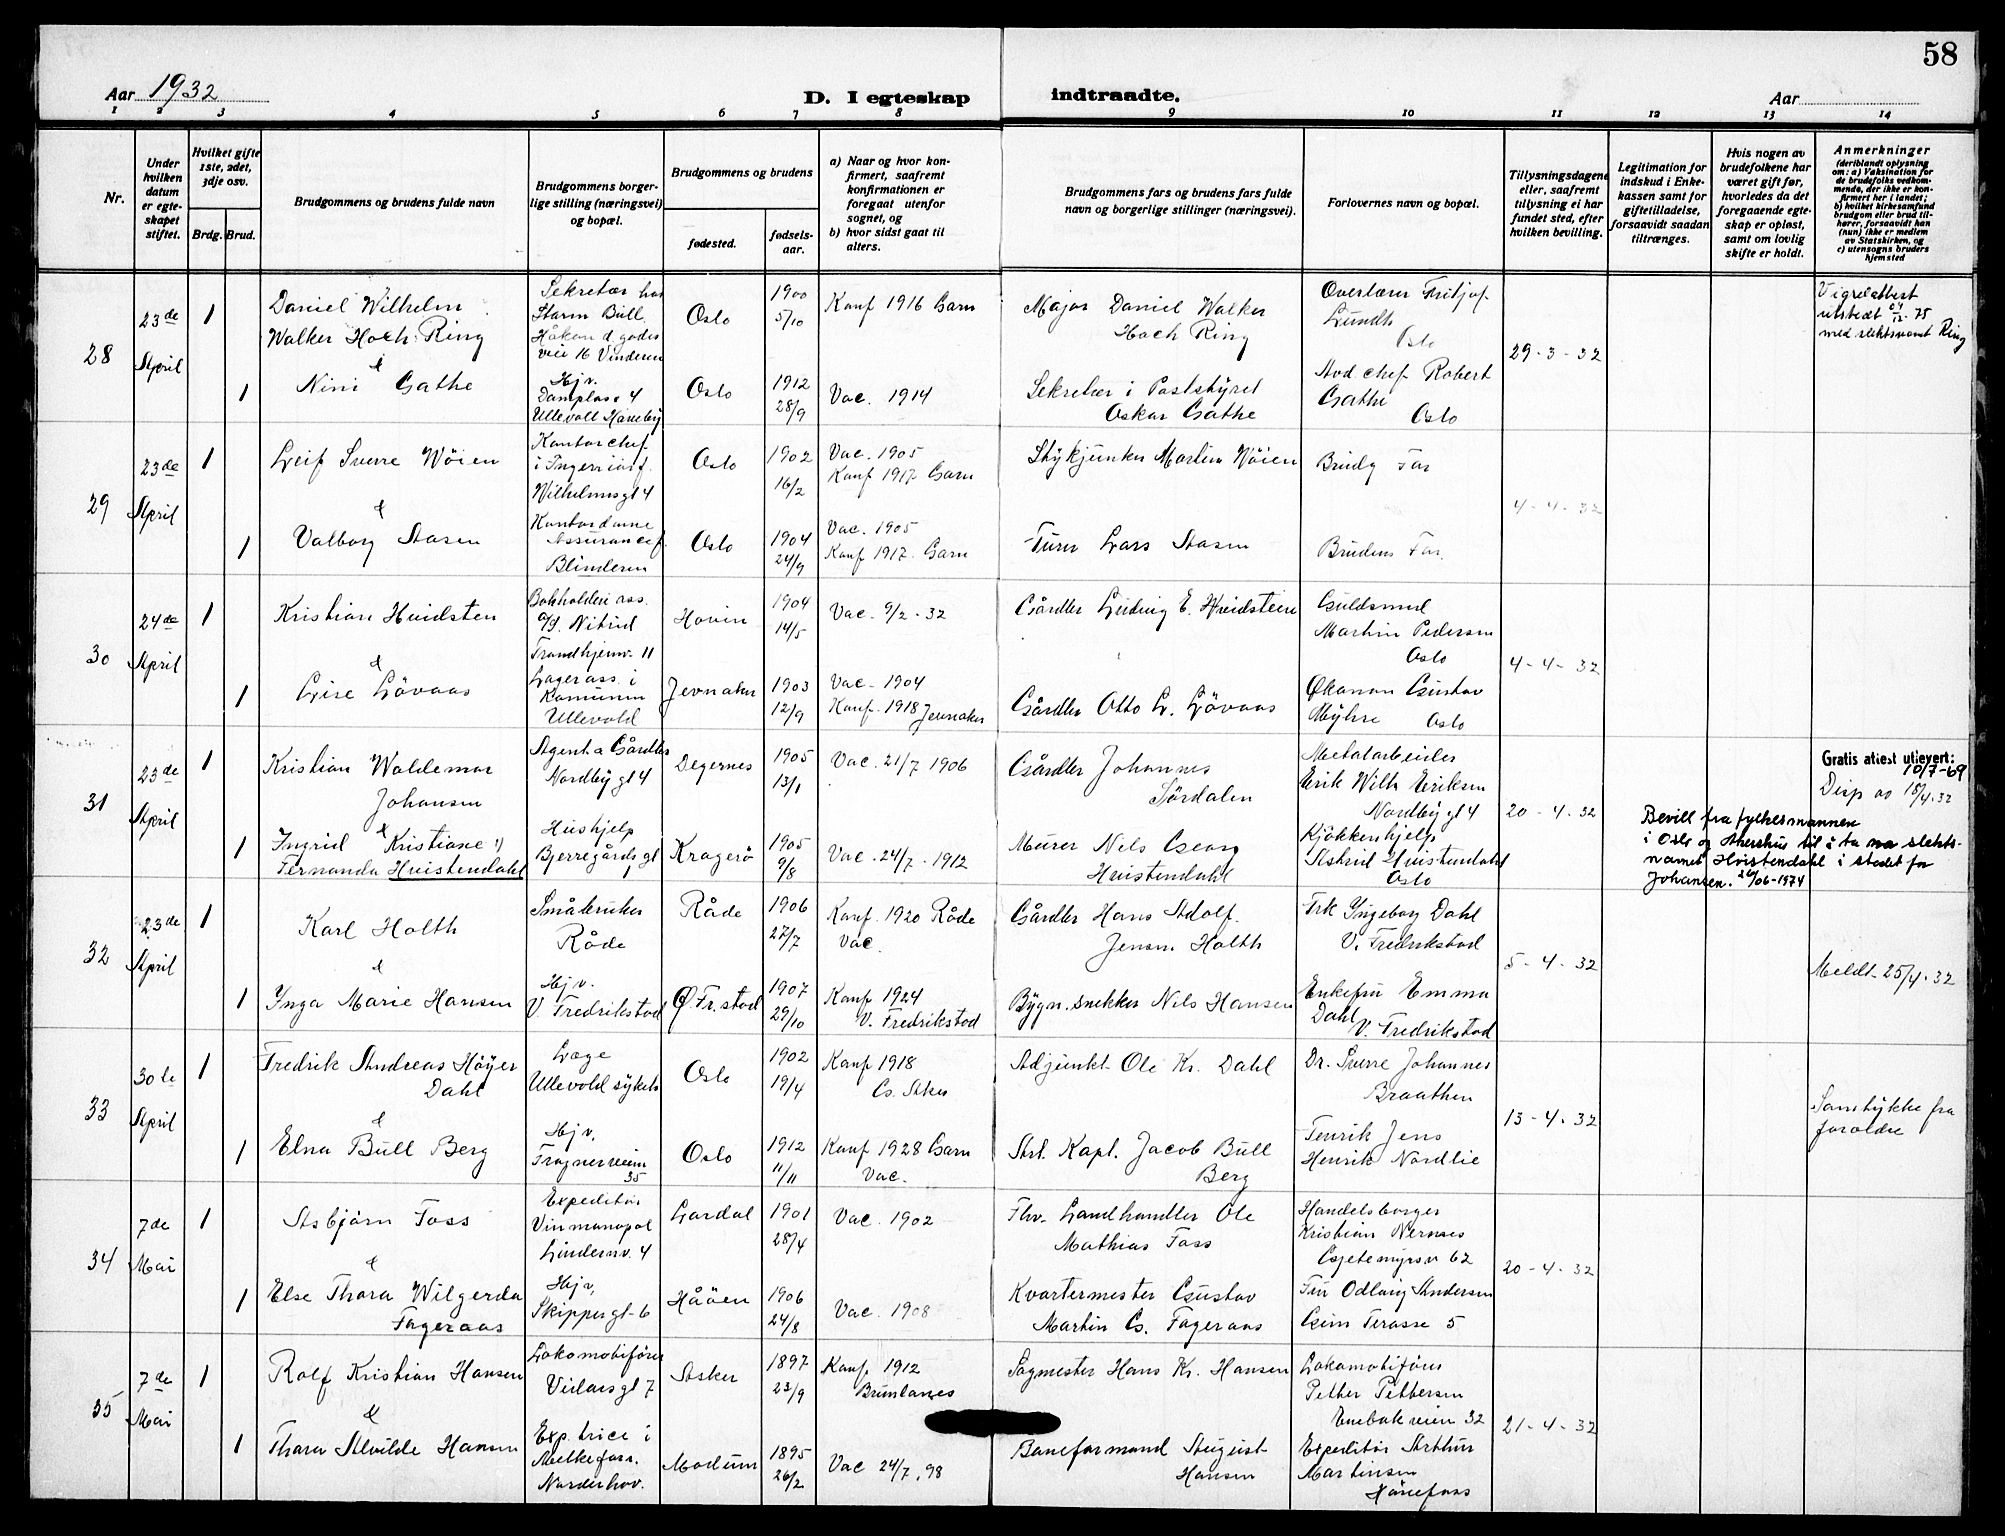 58
Aar 1932
D. I egteskap
indtraadte.
Aar
1 2 3 4 5 6 7 8 9 10 11 12 13 14
Nr.
Under
hvilken
datum
er egte-
skapet
stiftet.
Hvilket gifte
1ste, 2det,
3dje osv.
Brdg. Brud.
Brudgommens og brudens fulde navn
Brudgommens borger-
lige stilling (næringsvei)
og bopæl.
Brudgommens og brudens
fødested.
fødsels-
aar.
a) Naar og hvor kon-
firmert, saafremt
konfirmationen er
foregaat utenfor
sognet, og
b) hvor sidst gaat til
alters.
Brudgommens fars og brudens fars fulde
navn og borgerlige stillinger (næringsvei).
Forlovernes navn og bopæl.
Tillysningsdagene
eller, saafremt
tillysning ei har
fundet sted, efter
hvilken bevilling.
Legitimation for
indskud i Enke-
kassen samt for
giftetilladelse,
forsaavidt saadan
tiltrænges.
Hvis nogen av
brudefolkene har
været gift før,
hvorledes da det
foregaaende egte-
skap er opløst,
samt om lovlig
skifte er holdt.
Anmerkninger
(deriblandt oplysning
om: a) Vaksination for
de brudefolks vedkom-
mende, der ikke er kon-
firmert her i landet;
b) hvilket kirkesamfund
brudgom eller brud til-
hører, forsaavidt han
(hun) ikke er medlem
av Statskirken, og
c) utensogns bruders
hjemsted
28
23de
April
1
Daniel Wilhelm
Walker Hoch Ring
&
Sekretær hos
Storm Bull
Håkon d. godes
vei 16 Vinderen
Oslo
1900
5/10
Konf 1916 Garn
Major Daniel Walker
Hoch Ring
Overlærer Fritjof
Lundh
Oslo
29-3-32
Vigselattest
utstedt
med slektsnavnet Ring
1
Nini Gathe
Hjv.
Damplass 4
Ullevoll Haveby
Oslo
1912
28/9
Vac. 1914
Sekretær i Poststyret
Oskar Gathe
Avd chef Robert
Gathe
Oslo
29
23de
April
1
Leif Sverre Wöien
&
Kontorchef
Wilhelmsgt 4
Oslo
1902
16/2
Vac. 1905
Konf 1917 Garn
Stykjunker Martin Wöien
Brudg Far
4-4-32
1
Valborg Aasen
Kontordame
Assurancef.
Blindern
Oslo
1904
24/9
Vac. 1905
Konf 1917. Garn
Lars Aasen
Brudens Far.
30
24de
April
1
Kristian Hvidsten
&
Bokholderi ass.
A/S. Nitrid
Trondhjemv. 11
Hovin
1904
14/5
Vac. 9/2-32
Gårdbr Ludvig E. Hvidsteen
Guldsmed
Martin Pedersen
Oslo
4-4-32
1
Lise Lövaas
Lagerass. i
Komunen
Ullevold
Jevnaker
1903
12/9
Vac. 1904
Konf. 1918 Jevnaker
Gårdbr Otto L. Lövaas
Økonom Gustav
Myhre Oslo
31
23de
April
1
Kristian Waldemar
Johansen
&
Agent & Gårdbr
Nordbygt 4
Degernes
1905
13/1
Vac. 21/7 1906
Gårdbr Johannes
Sördalen
Metalarbeider
Erik Wilh Eriksen
Nordbygt 4
20-4-32
Gratis attest utlevert:
10/7-69
Disp av 15/4.32
1
Ingrid Kristiane
Fernanda Hvistendahl
Hushjelp
Bjerregårdsgt
Kragerö
1905
9/8
Vac. 24/7. 1912
Murer Nils Georg
Hvistendahl
Kjökkenhjelp
Astrid Hvistendahl
Oslo
Bevill fra fylkesmannen
i Oslo og Akershus til å ta slekts-
namet Hvistendahl i stedet for
Johansen. 26/06-1974
32
23de
April
1
Karl Holth
&
Småbruker
Råde
Råde
1906
27/7
Konf. 1920 Råde
Vac.
Gårdbr Hans Adolf
Jensen Holth
Frk Ingeborg Dahl
V. Fredrikstad
5-4-32
Meldt 25/4.32
1
Inga Marie Hansen
Hjv.
V. Fredrikstad
Ø Fr.stad
1907
29/10
Konf 1924
V. Fredrikstad
Bygn. snekker Nils Hansen
Enkefru Emma
Dahl
V. Fredrikstad
33
30te
April
1
Fredrik Andreas Höyer
Dahl
&
Læge
Ullevold sykeh
Oslo
1902
19/4
Konf 1918
G. Aker
Adjunkt Ole Kr. Dahl
Dr. Sverre Johannes
Braathen
13-4-32
Samtykke fra
foreldre
1
Elna Bull Berg
Hjv,
Frognerveien
35
Oslo
1912
11/11
Konf 1928 Garn
Vac.
Art. Kapt. Jacob Bull
Berg
Fenrik Jens
Henrik Nordlie
34
7de
Mai
1
Asbjörn Foss
&
Expeditör
Vinmonopol
Lindernv. 4
Lardal
1901
28/4
Vac. 1902
Fhv. Landhandler Ole
Mathias Foss
Handelsborger
Kristian Nernæs
Gjetemyrsv 62
20-4-32
1
Else Thora Wilgerda
Fageraas
Hjv,
Skippergt-6
Håöen
1906
24/8
Vac. 1908
Kvartermester Gustav
Martin G. Fageraas
Fru Odlaug Andersen
Geim Terasse 5
35
7de
Mai
1
Rolf Kristian Hansen
&
Lokomobiförer
Asker
1897
23/9
Konf 1912
Brunlanes
Sagmester Hans Kr. Hansen
Lokomobiförer
Petter Pettersen
Enebakveien 32
21-4-32
1
Thora Alvilde Hansen
Exp. trice i
Melkeforr.
Norderhov.
Modum
1895
26/2
Vac 24/7, 98
Baneformand August
Hansen
Expeditör Arthur
Martinsen
Hönefoss